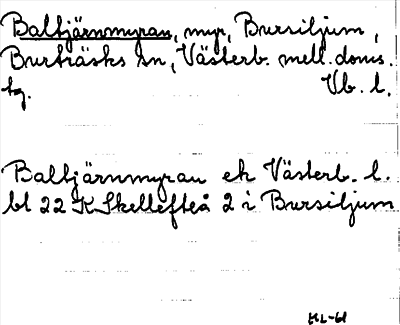 Baltjärnmyran, myr, Bursiljum,
Burträsks sn, Västerb. mell. doms.
tg. Vb. l.
Baltjärnmyran ek Västerb. l.
bl 22 K Skellefteå 2 i Bursiljum
HL-61